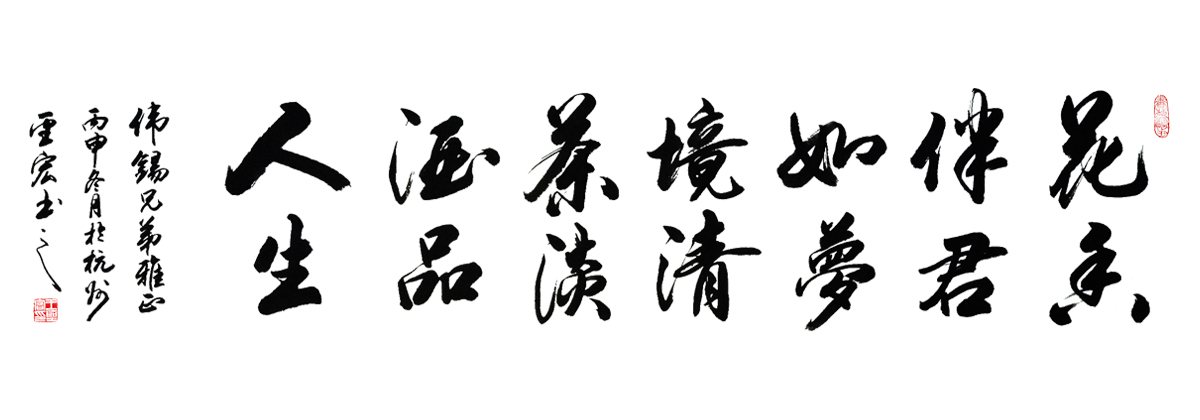 花香
伴君
如夢
境清
茶淡
酒品
人生
伟锡兄弟雅正
丙申冬月於杭州
云宏书之